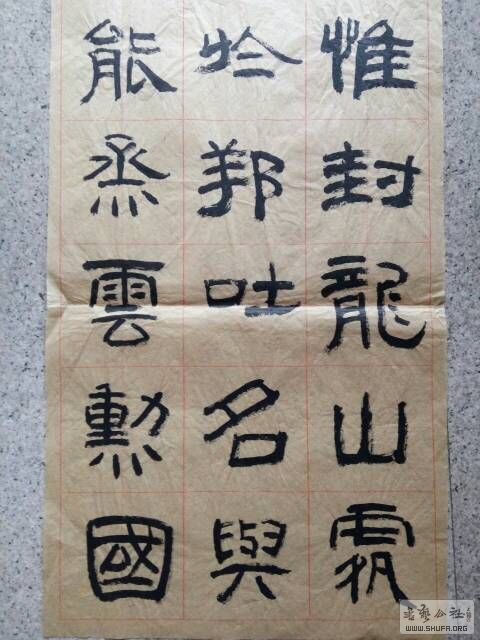 惟封龍山
於邦吐名與
能烝雲勳國
书艺公社
WWW.SHUFA.ORG